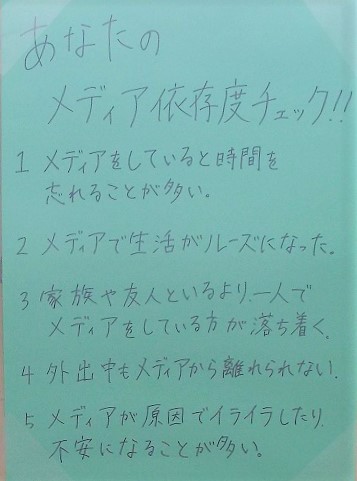 あなたの
メディア依存度チェック!!
1 メディアをしていると時間を
忘れることが多い。
2 メディアで生活がルーズになった。
3 家族や友人といるより、一人で
メディアをしている方が落ち着く。
4 外出中もメディアから離れられない。
5 メディアが原因でイライラしたり、
不安になることが多い。